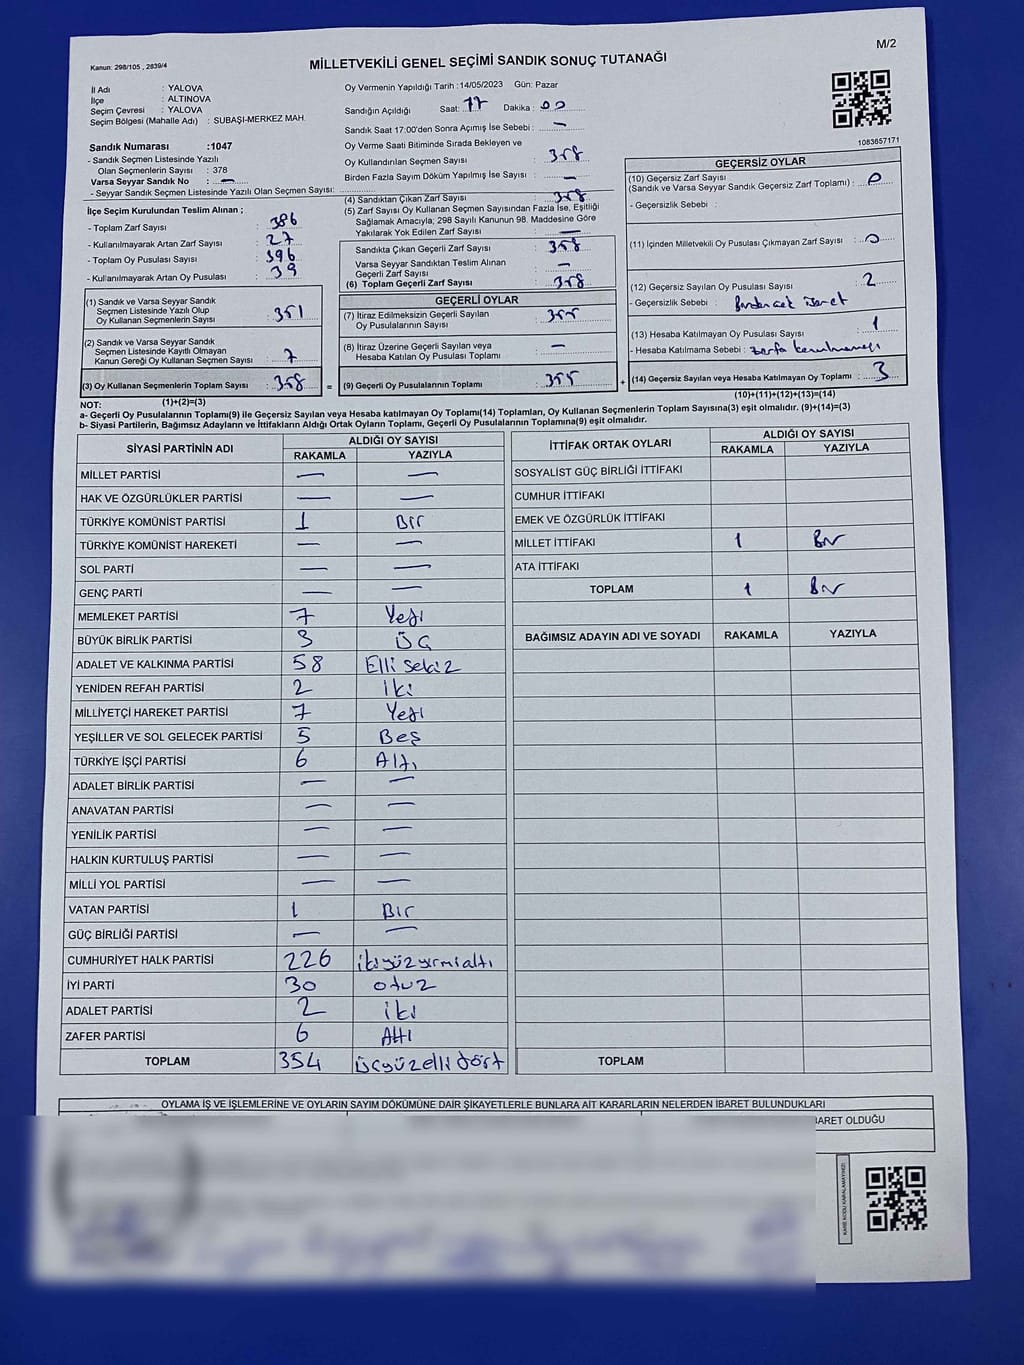 M/2
Kanun: 298/105 , 2839/4
MİLLETVEKİLİ GENEL SEÇİMİ SANDIK SONUÇ TUTANAĞI
İl Adı : YALOVA
İlçe : ALTINOVA
Seçim Çevresi : YALOVA
Seçim Bölgesi (Mahalle Adı) : SUBAŞI-MERKEZ MAH.
Sandık Numarası :1047
- Sandık Seçmen Listesinde Yazılı
Olan Seçmenlerin Sayısı : 378
Varsa Seyyar Sandık No : —
- Seyyar Sandık Seçmen Listesinde Yazılı Olan Seçmen Sayısı:
İlçe Seçim Kurulundan Teslim Alınan ;
- Toplam Zarf Sayısı : 386
- Kullanılmayarak Artan Zarf Sayısı : 27
- Toplam Oy Pusulası Sayısı : 396
- Kullanılmayarak Artan Oy Pusulası : 39
(1) Sandık ve Varsa Seyyar Sandık
Seçmen Listesinde Yazılı Olup
Oy Kullanan Seçmenlerin Sayısı : 351
(2) Sandık ve Varsa Seyyar Sandık
Seçmen Listesinde Kayıtlı Olmayan
Kanun Gereği Oy Kullanan Seçmen Sayısı : 7
(3) Oy Kullanan Seçmenlerin Toplam Sayısı : 358
(1)+(2)=(3)
Oy Vermenin Yapıldığı Tarih :14/05/2023 Gün: Pazar
Sandığın Açıldığı Saat: 17 Dakika : 00
Sandık Saat 17:00'den Sonra Açımış İse Sebebi : —
Oy Verme Saati Bitiminde Sırada Bekleyen ve
Oy Kullandırılan Seçmen Sayısı : 358
Birden Fazla Sayım Döküm Yapılmış İse Sayısı : —
(4) Sandıktan Çıkan Zarf Sayısı : 358
(5) Zarf Sayısı Oy Kullanan Seçmen Sayısından Fazla İse, Eşitliği
Sağlamak Amacıyla; 298 Sayılı Kanunun 98. Maddesine Göre
Yakılarak Yok Edilen Zarf Sayısı : —
Sandıkta Çıkan Geçerli Zarf Sayısı : 358
Varsa Seyyar Sandıktan Teslim Alınan
Geçerli Zarf Sayısı : —
(6) Toplam Geçerli Zarf Sayısı : 358
GEÇERLİ OYLAR
(7) İtiraz Edilmeksizin Geçerli Sayılan
Oy Pusulalarının Sayısı : 355
(8) İtiraz Üzerine Geçerli Sayılan veya
Hesaba Katılan Oy Pusulası Toplamı : —
= (9) Geçerli Oy Pusulalarının Toplamı : 355 +
1083657171
GEÇERSİZ OYLAR
(10) Geçersiz Zarf Sayısı
(Sandık ve Varsa Seyyar Sandık Geçersiz Zarf Toplamı) : 0
- Geçersizlik Sebebi :
(11) İçinden Milletvekili Oy Pusulası Çıkmayan Zarf Sayısı : 0
(12) Geçersiz Sayılan Oy Pusulası Sayısı : 2
- Geçersizlik Sebebi :
(13) Hesaba Katılmayan Oy Pusulası Sayısı : 1
- Hesaba Katılmama Sebebi : zarfa konulmamış
(14) Geçersiz Sayılan veya Hesaba Katılmayan Oy Toplamı : 3
(10)+(11)+(12)+(13)=(14)
NOT:
a- Geçerli Oy Pusulalarının Toplamı(9) ile Geçersiz Sayılan veya Hesaba katılmayan Oy Toplamı(14) Toplamları, Oy Kullanan Seçmenlerin Toplam Sayısına(3) eşit olmalıdır. (9)+(14)=(3)
b- Siyasi Partilerin, Bağımsız Adayların ve İttifakların Aldığı Ortak Oyların Toplamı, Geçerli Oy Pusulalarının Toplamına(9) eşit olmalıdır.
SİYASİ PARTİNİN ADI ALDIĞI OY SAYISI
RAKAMLA YAZIYLA
MİLLET PARTİSİ — —
HAK VE ÖZGÜRLÜKLER PARTİSİ — —
TÜRKİYE KOMÜNİST PARTİSİ 1 Bir
TÜRKİYE KOMÜNİST HAREKETİ — —
SOL PARTİ — —
GENÇ PARTİ — —
MEMLEKET PARTİSİ 7 Yedi
BÜYÜK BİRLİK PARTİSİ 3 Üç
ADALET VE KALKINMA PARTİSİ 58 Elli sekiz
YENİDEN REFAH PARTİSİ 2 İki
MİLLİYETÇİ HAREKET PARTİSİ 7 Yedi
YEŞİLLER VE SOL GELECEK PARTİSİ 5 Beş
TÜRKİYE İŞÇİ PARTİSİ 6 Altı
ADALET BİRLİK PARTİSİ — —
ANAVATAN PARTİSİ — —
YENİLİK PARTİSİ — —
HALKIN KURTULUŞ PARTİSİ — —
MİLLİ YOL PARTİSİ — —
VATAN PARTİSİ 1 Bir
GÜÇ BİRLİĞİ PARTİSİ — —
CUMHURİYET HALK PARTİSİ 226 ikiyüzyirmialtı
İYİ PARTİ 30 otuz
ADALET PARTİSİ 2 iki
ZAFER PARTİSİ 6 Altı
TOPLAM 354 üçyüzelli dört
İTTİFAK ORTAK OYLARI ALDIĞI OY SAYISI
RAKAMLA YAZIYLA
SOSYALİST GÜÇ BİRLİĞİ İTTİFAKI
CUMHUR İTTİFAKI
EMEK VE ÖZGÜRLÜK İTTİFAKI
MİLLET İTTİFAKI 1 Bir
ATA İTTİFAKI
TOPLAM 1 Bir
BAĞIMSIZ ADAYIN ADI VE SOYADI RAKAMLA YAZIYLA
TOPLAM
OYLAMA İŞ VE İŞLEMLERİNE VE OYLARIN SAYIM DÖKÜMÜNE DAİR ŞİKAYETLERLE BUNLARA AİT KARARLARIN NELERDEN İBARET BULUNDUKLARI
İBARET OLDUĞU
KARE KODU KARALAMAYINIZ!